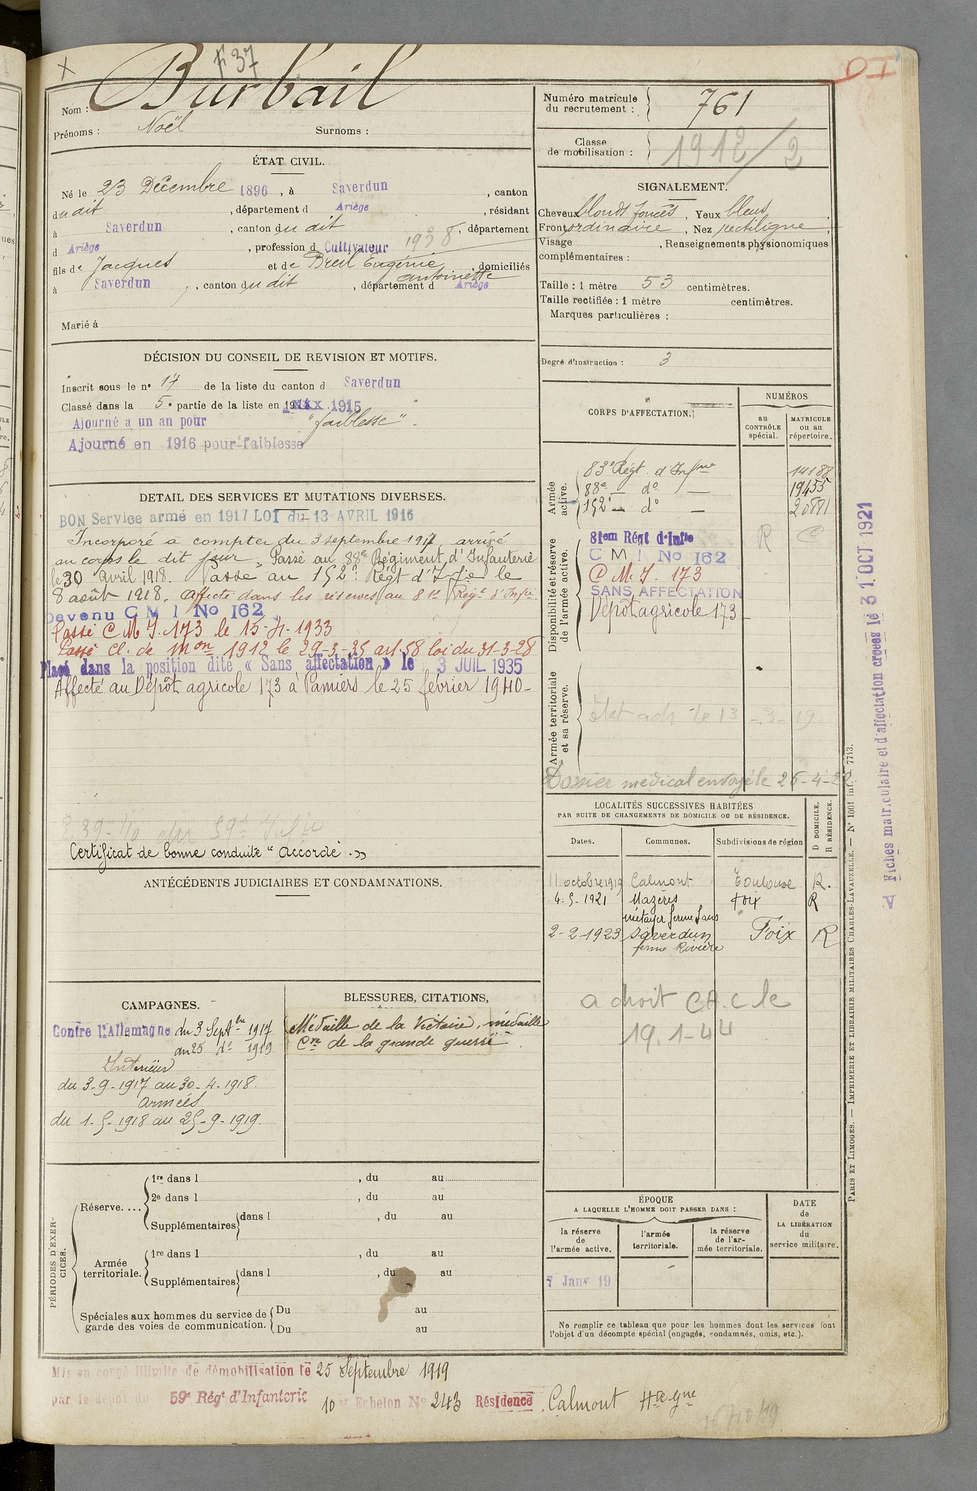 F 37
X
Nom : Burbail
Prénoms : Noël Surnoms :
Numéro matricule du recrutement : 761
Classe de mobilisation : 1912/2
ÉTAT CIVIL.
Né le 23 Décembre 1896, à Saverdun, canton
du dit, département d Ariège, résidant
à Saverdun, canton du dit, département
d Ariège, profession d Cultivateur 1938
fils de Jacques et de Breil Eugénie antoinette, domiciliés
à Saverdun, canton du dit, département d Ariège
Marié à
SIGNALEMENT.
Cheveux blonds foncés, Yeux bleus
Front ordinaire, Nez rectiligne
Visage , Renseignements physionomiques
complémentaires :
Taille : 1 mètre 53 centimètres.
Taille rectifiée : 1 mètre centimètres.
Marques particulières :
Degré d'instruction : 3
DÉCISION DU CONSEIL DE REVISION ET MOTIFS.
Inscrit sous le n° 17 de la liste du canton d Saverdun
Classé dans la 5e partie de la liste en 1915
Ajourné a un an pour "faiblesse".
Ajourné en 1916 pour faiblesse
DETAIL DES SERVICES ET MUTATIONS DIVERSES.
BON Service armé en 1917 LOI du 13 AVRIL 1916
Incorporé à compter du 3 septembre 1917, arrivé
au corps le dit jour. Passé au 88e Régiment d'Infanterie
le 30 avril 1918. Passé au 152e Régt d'Infie le
8 août 1918. Affecté dans les réserves au 81e Régt d'Infie
Devenu C M I No 162
Passé C.M.I. 173 le 15-4-1933
Passé cl. de mon 1912 le 29-3-35 art. 58 loi du 31-3-28
Placé dans la position dite « Sans affectation » le 3 JUIL 1935
Affecté au Dépôt agricole 173 à Pamiers le 25 février 1940-
Certificat de bonne conduite "accordé".
CORPS D'AFFECTATION.
NUMÉROS
au CONTRÔLE spécial.
MATRICULE ou au répertoire.
Armée active.
83e Régt d'Infie 14188
88e — do — 19455
152e — do — 20881
Disponibilité et réserve de l'armée active.
81em Régt d'Infie R C
C M I No 162
C M I. 173
SANS AFFECTATION
Dépôt agricole 173-
Armée territoriale et sa réserve.
Dossier médical envoyé le 25-4-22
LOCALITÉS SUCCESSIVES HABITÉES
PAR SUITE DE CHANGEMENTS DE DOMICILE OU DE RÉSIDENCE.
Dates. Communes. Subdivisions de région D DOMICILE. R RÉSIDENCE.
11 octobre 1919 Calmont Toulouse R.
4-5-1921 Mazères Foix R
métayer ferme
2-2-1923 Saverdun Foix R
ferme Rivière
a droit C.A.C le
19.1-44
ANTÉCÉDENTS JUDICIAIRES ET CONDAMNATIONS.
CAMPAGNES.
Contre l'Allemagne du 3 Septbre 1917
au 25 do 1919
Intérieur
du 3-9-1917 au 30-4-1918.
armées
du 1-5-1918 au 25-9-1919.
BLESSURES, CITATIONS,
Médaille de la Victoire, médaille
Cve de la grande guerre
PÉRIODES D'EXERCICES.
Réserve....
1re dans l , du au
2e dans l , du au
Supplémentaires dans l , du au
Armée territoriale.
1re dans l , du au
Supplémentaires dans l , du au
Spéciales aux hommes du service de garde des voies de communication.
Du au
Du au
ÉPOQUE
A LAQUELLE L'HOMME DOIT PASSER DANS :
la réserve de l'armée active.
l'armée territoriale.
la réserve de l'armée territoriale.
DATE de LA LIBÉRATION du service militaire.
Janv 19
Ne remplir ce tableau que pour les hommes dont les services font
l'objet d'un décompte spécial (engagés, condamnés, omis, etc.).
Mis en congé illimité de démobilisation le 25 Septembre 1919
par le dépôt du 59e Régt d'Infanterie 10e Echelon No 243 Résidence Calmont Hte-Gne
Fiches matriculaire et d'affectation créées le 31 OCT 1921
PARIS ET LIMOGES. — IMPRIMERIE ET LIBRAIRIE MILITAIRES CHARLES-LAVAUZELLE.